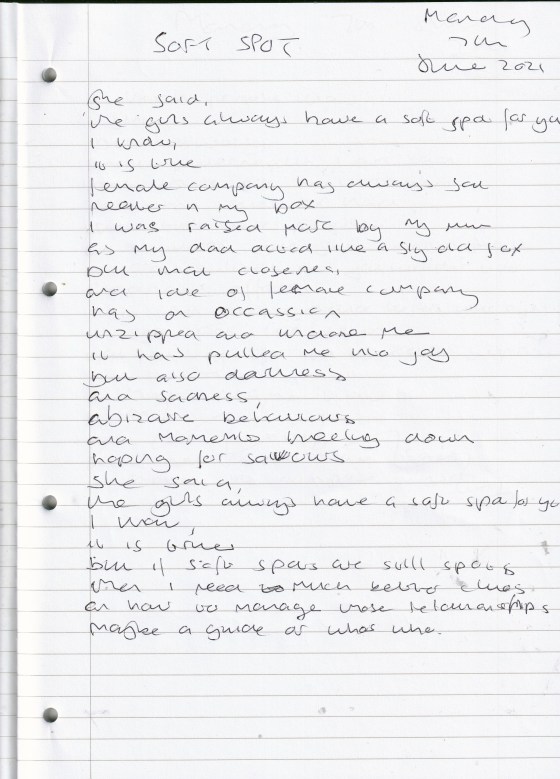 Monday
7th
June 2021
SOFT SPOT
She said,
the girls always have a soft spot for you
I know,
it is true
female company has always sat
neater in my box
I was raised more by my mum
as my dad acted like a sly old fox
but that closeness,
and love of female company
has on occassion
unzipped and undone me
it has pulled me into joy
but also darkness
and sadness,
abizarre behaviours
and moments kneeling down
hoping for saviours
She said,
the girls always have a soft spot for yo
I know,
it is true
but if soft spots are still spots
then I need much better clues
on how to manage those relationships
maybe a guide of whos who.